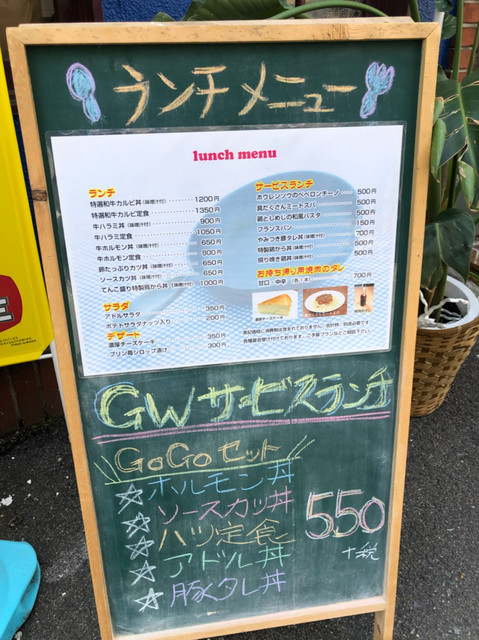 ランチメニュー
lunch menu
ランチ
特選和牛カルビ丼(味噌汁付) 1200円
特選和牛カルビ定食 1350円
牛ハラミ丼(味噌汁付) 900円
牛ハラミ定食 1050円
牛ホルモン丼(味噌汁付) 650円
牛ホルモン定食 800円
卵たっぷりカツ丼(味噌汁付) 650円
ソースカツ丼(味噌汁付) 650円
てんこ盛り特製鶏から丼(味噌汁付) 1000円
サラダ
アドルサラダ 350円
ポテトサラダナッツ入り 200円
デザート
濃厚チーズケーキ 350円
プリン苺シロップ漬け 300円
サービスランチ
ホウレンソウのペペロンチーノ 500円
具だくさんミートスパ 500円
鶏としめじの和風パスタ 500円
フランスパン 150円
やみつき豚タレ丼(味噌汁付) 700円
特製鶏から丼(味噌汁付) 500円
盛り焼き鶏丼(味噌汁付) 500円
お持ち帰り用焼肉のタレ
甘口・中辛(各1本) 700円
GWサービスランチ
GoGoセット
☆ホルモン丼
☆ソースカツ丼
☆ハツ定食
☆アドル丼
☆豚タレ丼
550
+税